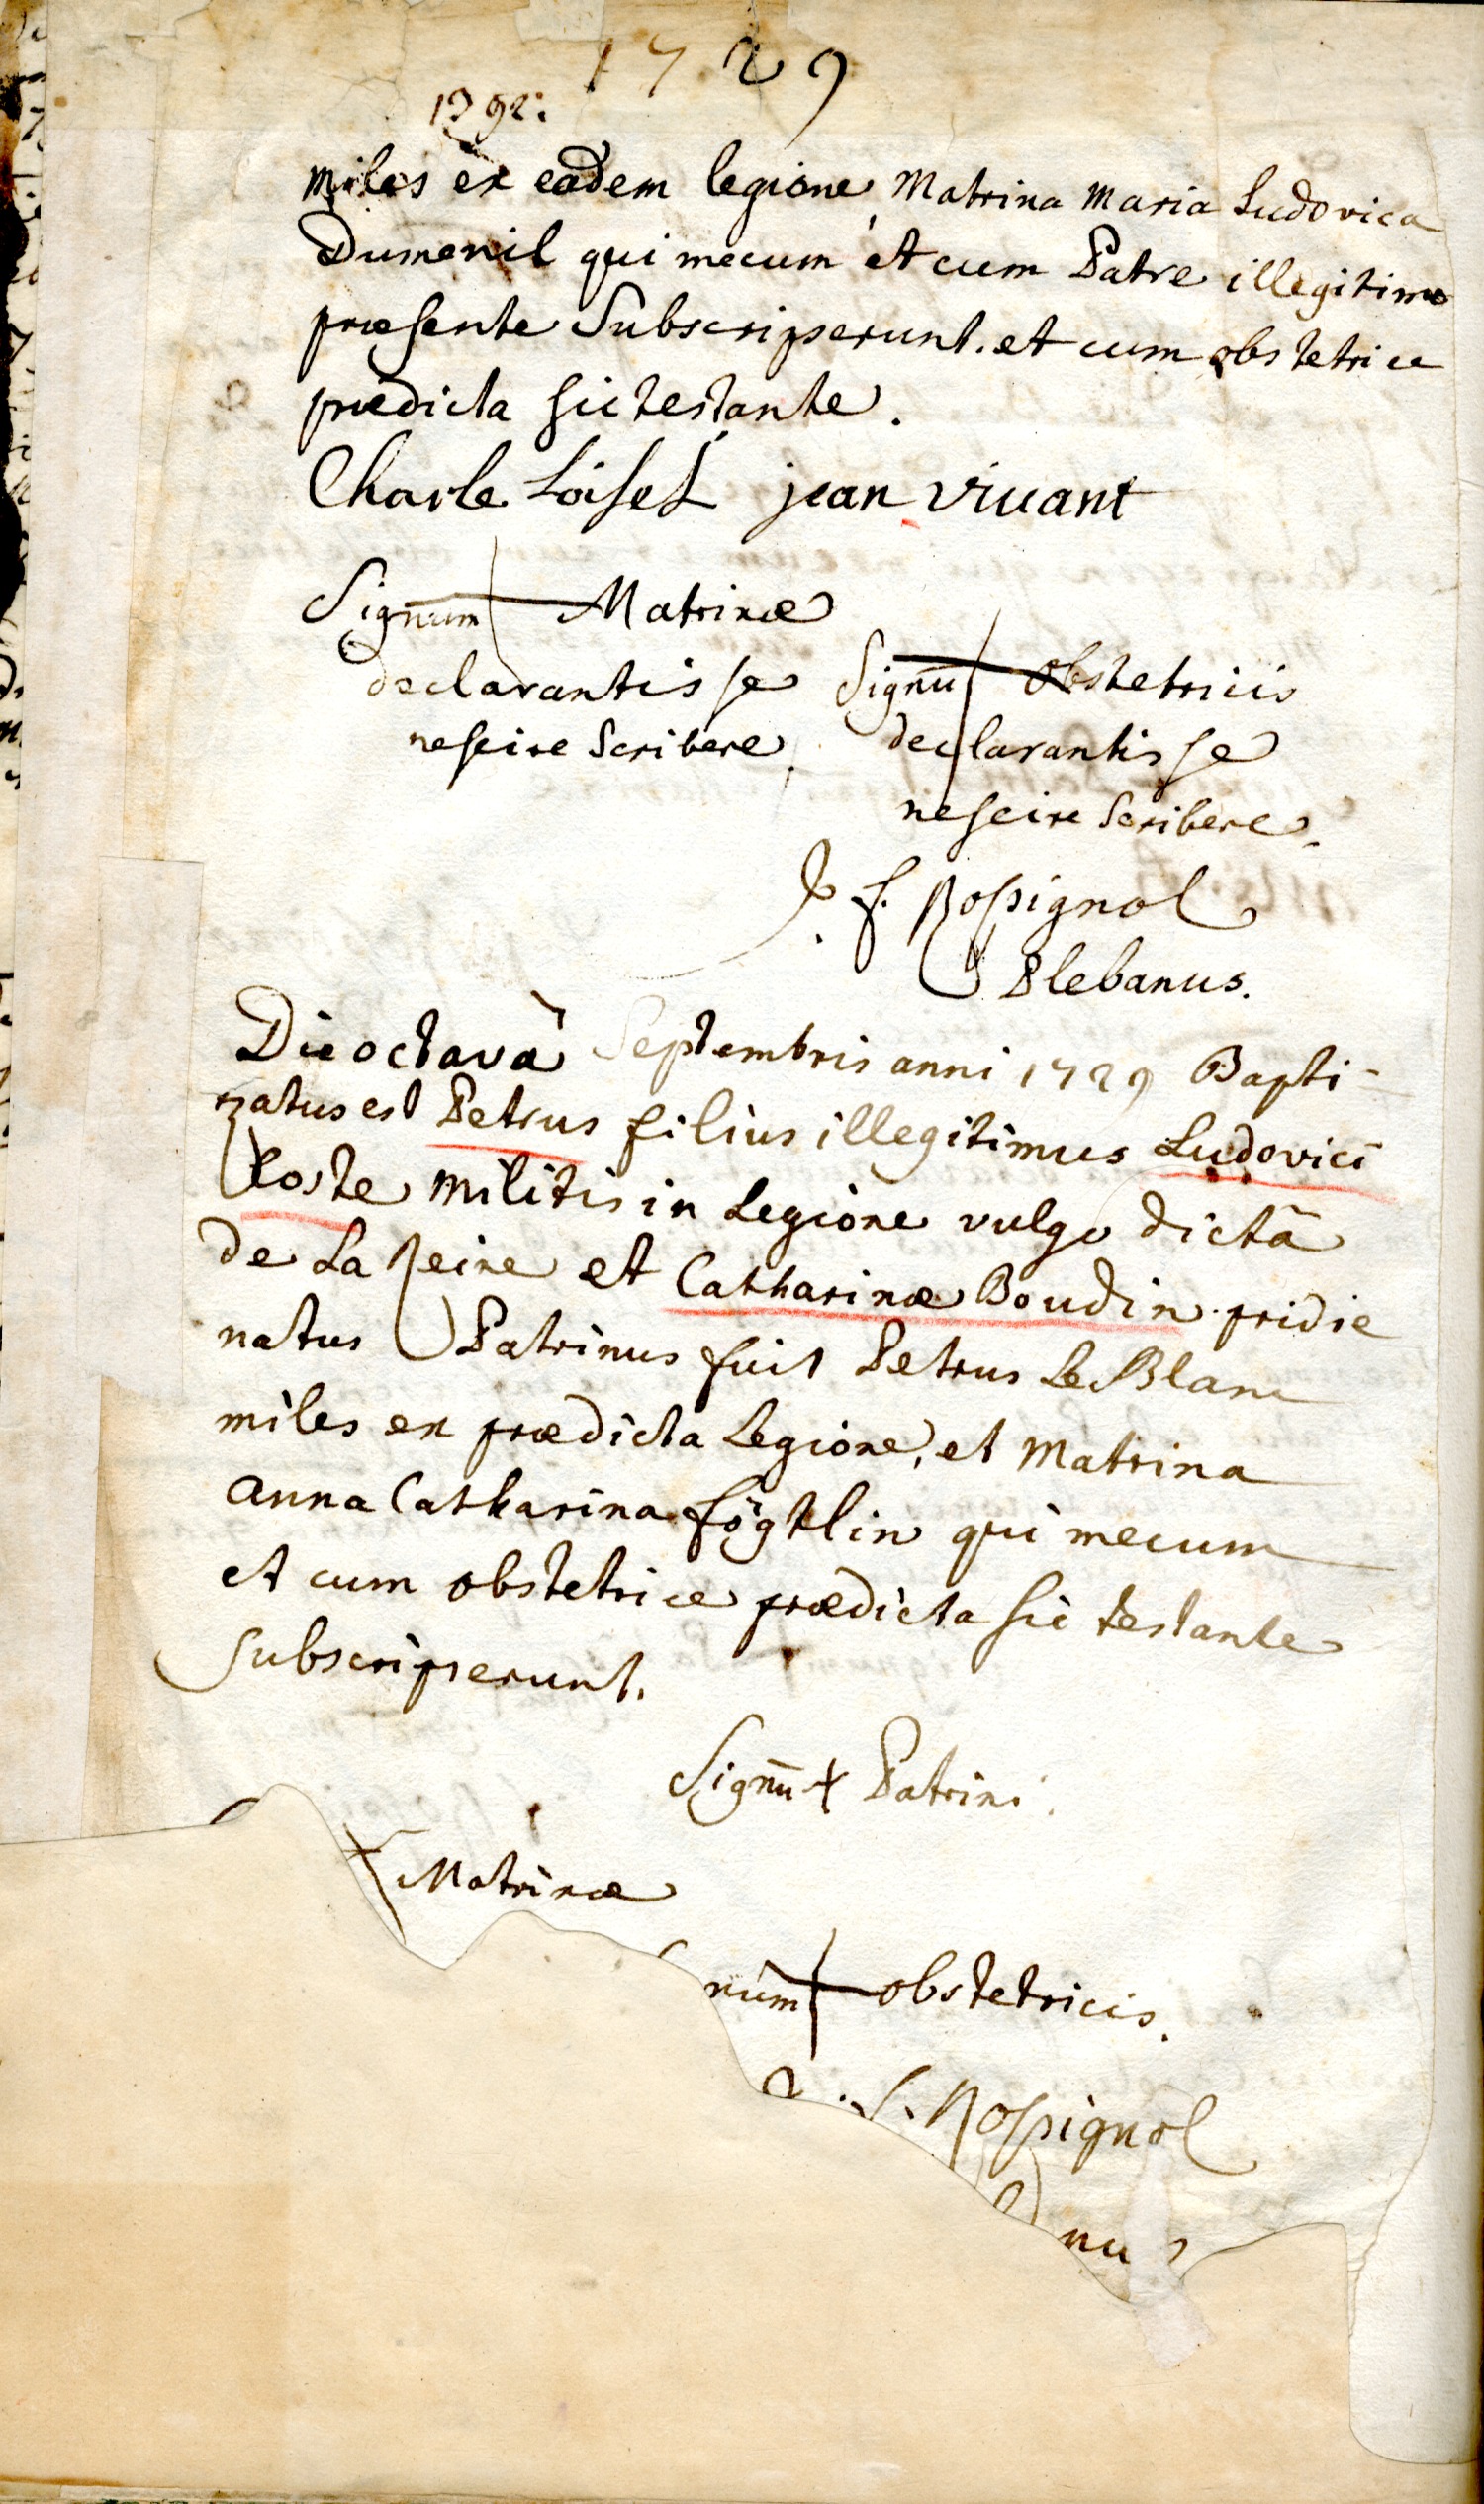 1729
1392.
miles ex eadem legione, Matrina Maria Ludovica
Dumenil qui mecum et cum Patre illegitimo
præsente Subscripserunt. et cum obstetrice
prædicta sic testante.
Charle Loisel jean vivant
Signum Matrinæ
declarantis se
nescire Scribere.
Signū obstetricis
declarantis se
nescire Scribere.
J. f. Rossignol
Plebanus.
Die octavâ Septembris anni 1729 Bapti-
zatus est Petrus filius illegitimus Ludovici
Coste militis in Legione vulgo dictâ
de La Reine et Catharinæ Boudin. pridie
natus Patrinus fuit Petrus Le Blanc
miles ex prædicta Legione, et Matrina
Anna Catharina fögtlin qui mecum
et cum obstetrice prædicta sic testante
Subscripserunt.
Signū + Patrini.
+ Matrinæ
num + obstetricis.
f. Rossignol
nus